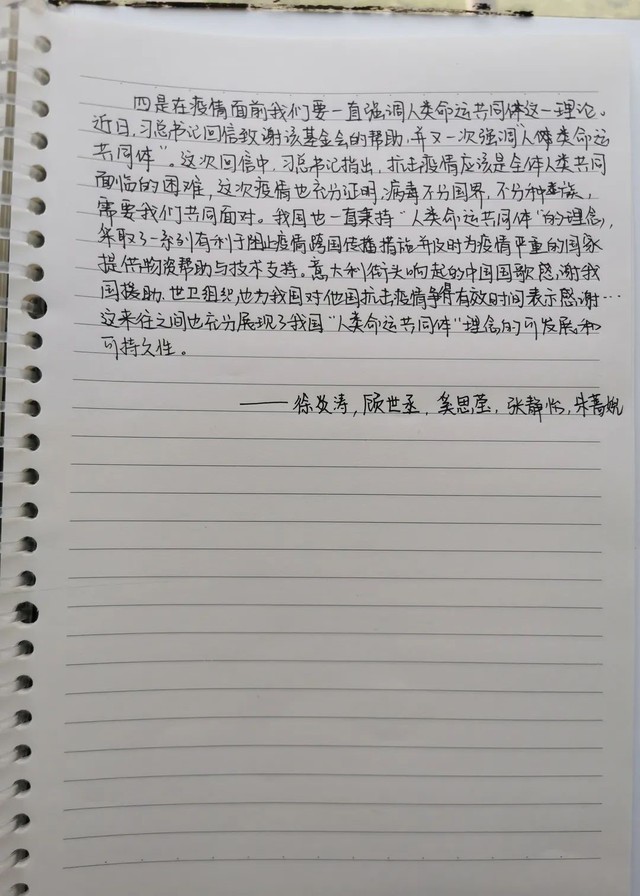 四是在疫情面前我们要一直强调人类命运共同体这一理论。
近日,习总书记回信致谢该基金会的帮助,并又一次强调"人体类命运
共同体"。这次回信中,习总书记指出,抗击疫情应该是全体人类共同
面临的困难,这次疫情也充分证明,病毒不分国界,不分种族,
需要我们共同面对。我国也一直秉持"人类命运共同体"的理念,
采取了一系列有利于阻止疫情跨国传播措施并及时为疫情严重的国家
提供物资帮助与技术支持。意大利街头响起的中国国歌感谢我
国援助,世卫组织也为我国对他国抗击疫情争得有效时间表示感谢…
这来往之间也充分展现了我国"人类命运共同体"理念的可发展和
可持久性。
——徐炎涛,顾世丞,奚思莹,张静怡,朱菁婉